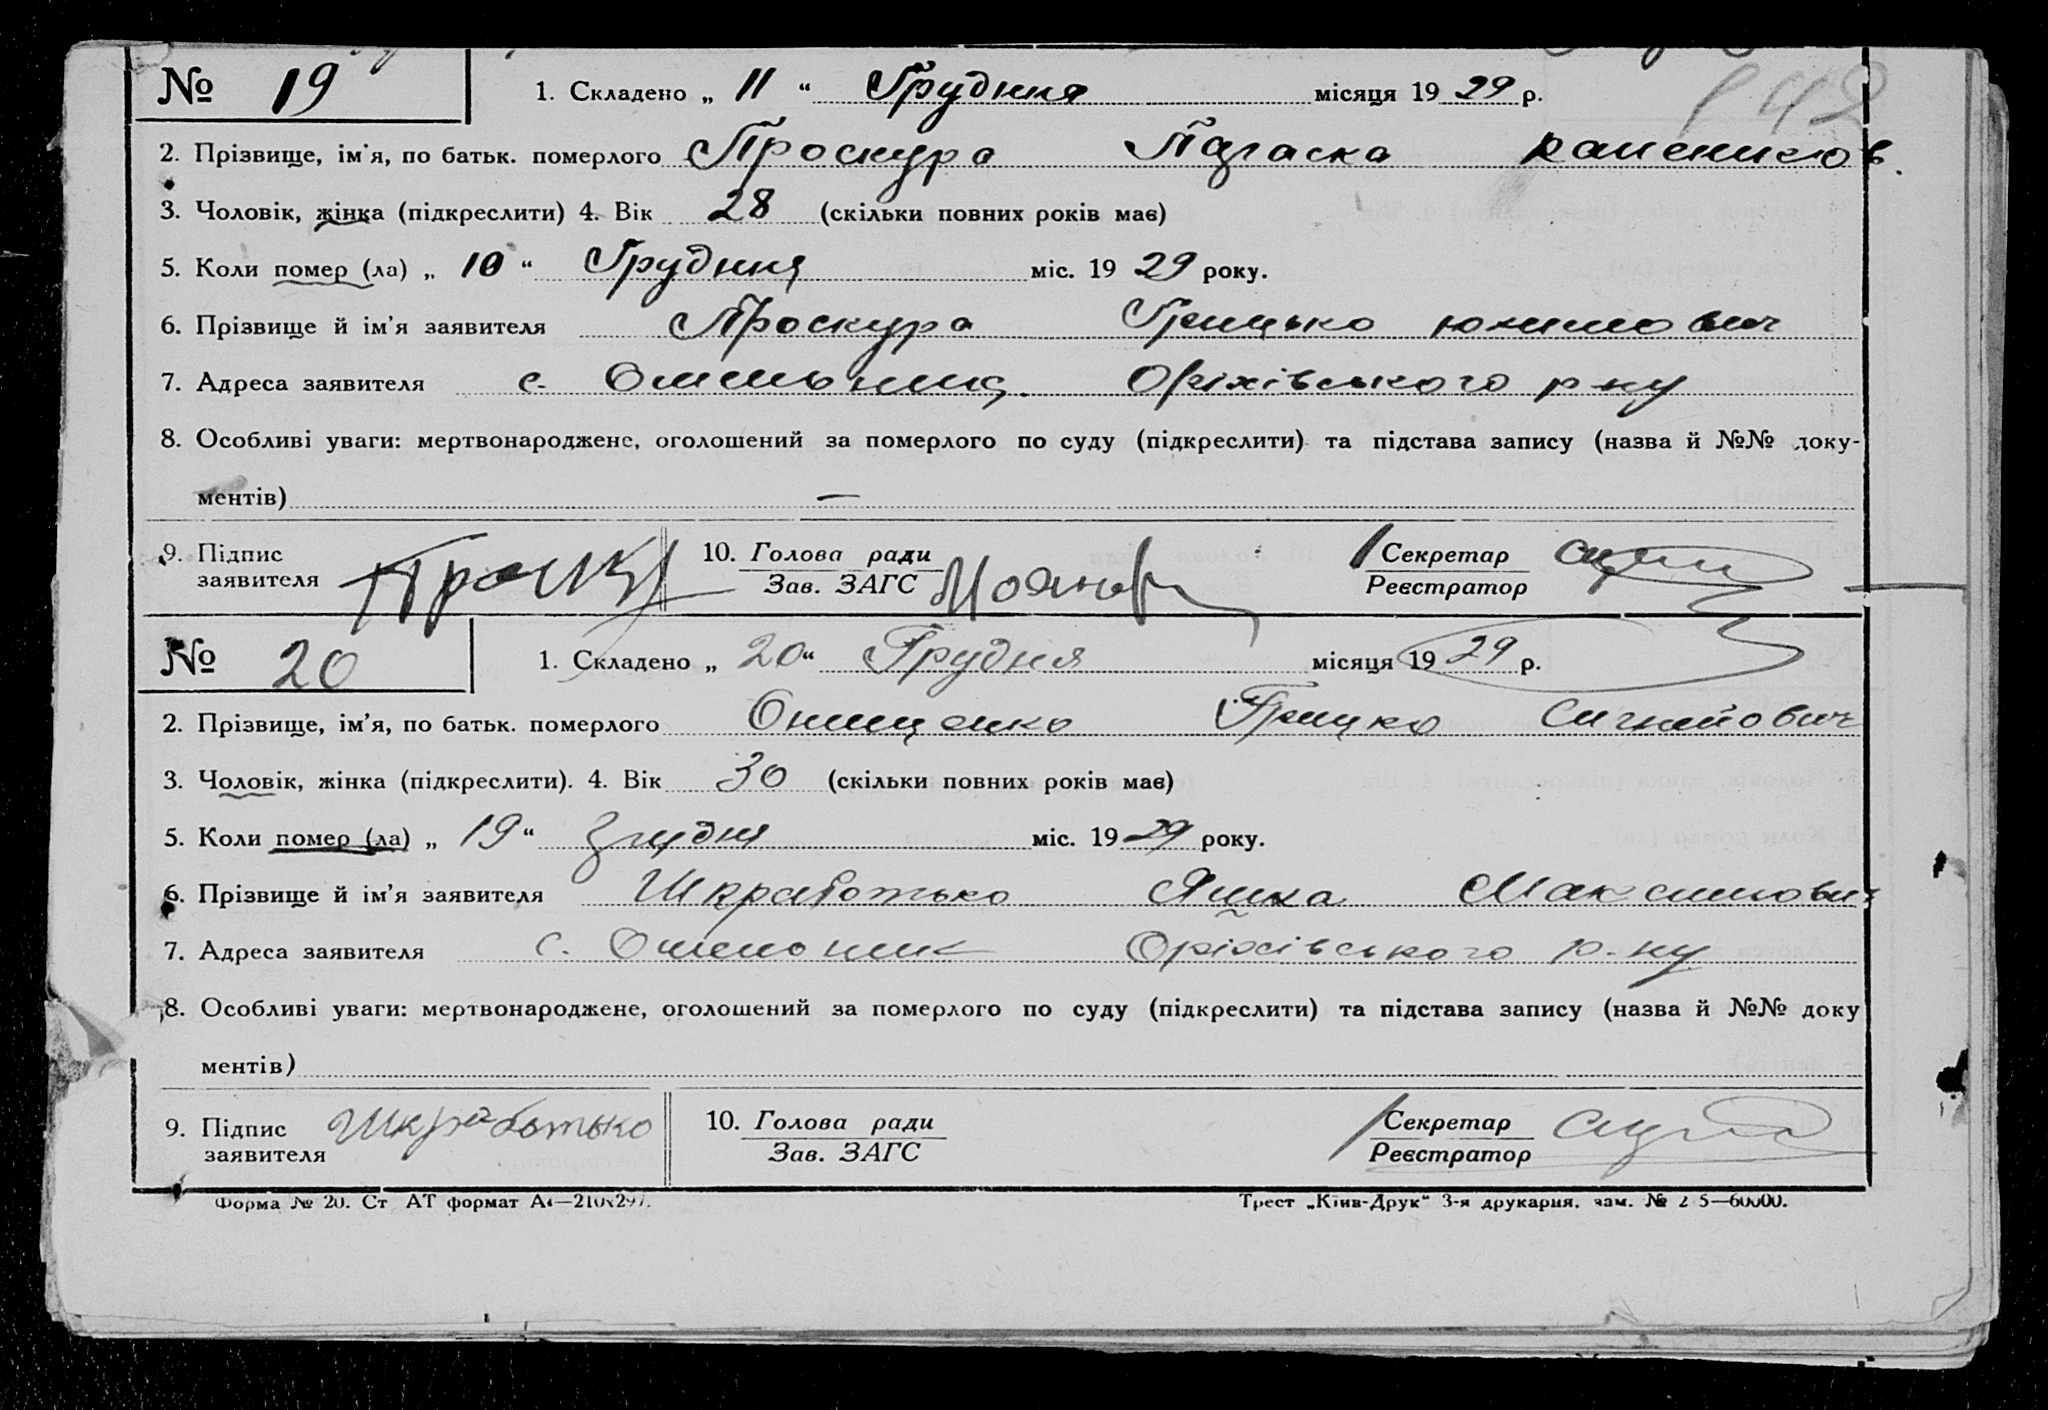 № 19 1. Складено „ 11 “ Грудння місяця 1929 р. 142
2. Прізвище, ім'я, по батьк. померлого Проскура
3. Чоловік, жінка (підкреслити) 4. Вік 28 (скільки повних років має)
5. Коли помер (ла) „ 10 “ Грудння міс. 1929 року.
6. Прізвище й ім'я заявителя Проскура Грицько юхимович
7. Адреса заявителя с. Оріхівського р-ну
8. Особливі уваги: мертвонароджене, оголошений за померлого по суду (підкреслити) та підстава запису (назва й №№ доку-
ментів) —
9. Підпис заявителя 10. Голова ради Зав. ЗАГС Секретар Реєстратор
№ 20 1. Складено „ 20 “ Грудня місяця 1929 р.
2. Прізвище, ім'я, по батьк. померлого Онищенко Грицко
3. Чоловік, жінка (підкреслити). 4. Вік 30 (скільки повних років має)
5. Коли помер (ла) „ 19 “ міс. 1929 року.
6. Прізвище й ім'я заявителя Шкработько Яшка Максимович
7. Адреса заявителя с. Омельник Оріхівського р-ну
8. Особливі уваги: мертвонароджене, оголошений за померлого по суду (підкреслити) та підстава запису (назва й №№ доку
ментів)
9. Підпис заявителя Шкработько 10. Голова ради Зав. ЗАГС Секретар Реєстратор
Форма № 20. Ст АТ формат А4—210x297. Трест „Київ-Друк“ 3-я друкарня, зам. № 2 5—60000.